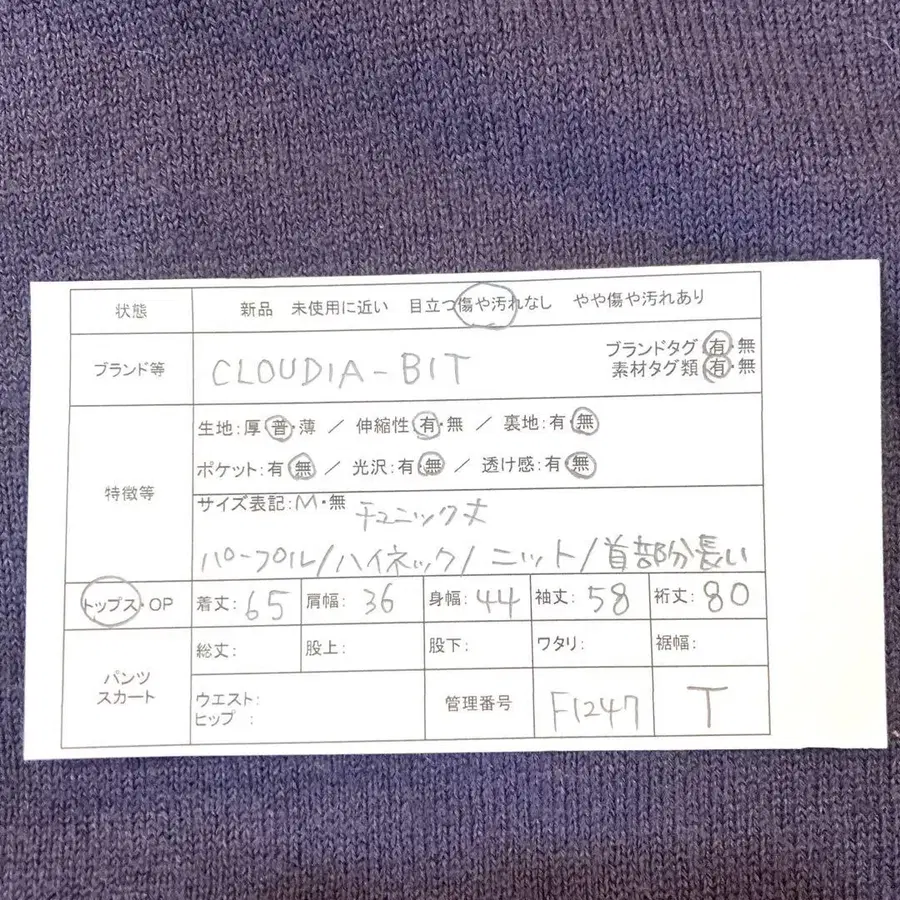 状態 新品 未使用に近い 目立つ傷や汚れなし やや傷や汚れあり
ブランド等 CLOUDIA-BIT ブランドタグ 有・無
素材タグ類 有・無
特徴等
生地:厚・普・薄 / 伸縮性 有・無 / 裏地:有・無
ポケット:有・無 / 光沢:有・無 / 透け感:有・無
サイズ表記:M・無 チュニック丈
パープル/ハイネック/ニット/首部分長い
トップス・OP 着丈:65 肩幅:36 身幅:44 袖丈:58 裄丈:80
パンツ
スカート
総丈: 股上: 股下: ワタリ: 裾幅:
ウエスト:
ヒップ :
管理番号 F1247 T